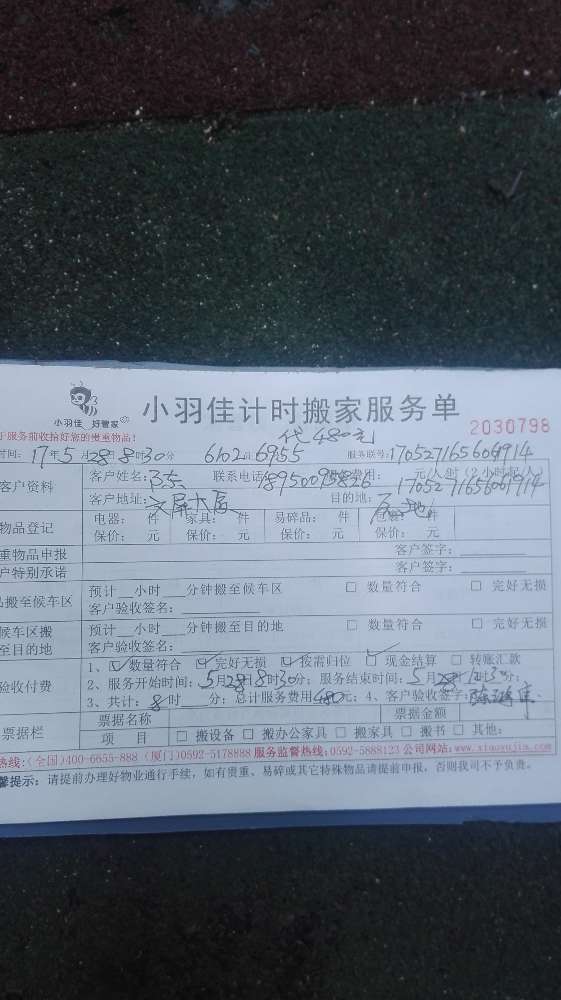 小羽佳 好管家
小羽佳计时搬家服务单
于服务前收拾好您的贵重物品！ 代480元 2030798
时间：17年5月28日8时30分 6102 6955 服务联号：170527165606914
客户资料 客户姓名：陈 联系电话：18950095826 费用： 元/人/时（2小时起/人）
客户地址：文屏大厦 目的地： 1705271656061914
物品登记 电器： 件 家具： 件 易碎品： 件 包装： 件
保价： 元 保价： 元 保价： 元 保价： 元
重物品申报 客户签字：
户特别承诺 客户签字：
品搬至候车区 预计__小时___分钟搬至候车区 □ 数量符合 □ 完好无损
客户验收签名：
候车区搬至目的地 预计__小时___分钟搬至目的地 □ 数量符合 □ 完好无损
客户验收签名：
验收付费 1、☑数量符合 ☑完好无损 ☑按需归位 ☑现金结算 □ 转账汇款
2、服务开始时间：5月28日8时30分；服务结束时间：5月28日 时 分；
3、共计：8时 分；总计服务费用480元；4、客户验收签字：
票据栏 票据名称 票据金额
项 目 □ 搬设备 □ 搬办公家具 □ 搬家具 □ 搬书 □ 其他：
热线：(全国)400-6655-888 (厦门)0592-5178888 服务监督热线：0592-5888123 公司网站：www.xiaoyujia.com
馨提示：请提前办理好物业通行手续，如有贵重、易碎或其它特殊物品请提前申报，否则我司不予负责。